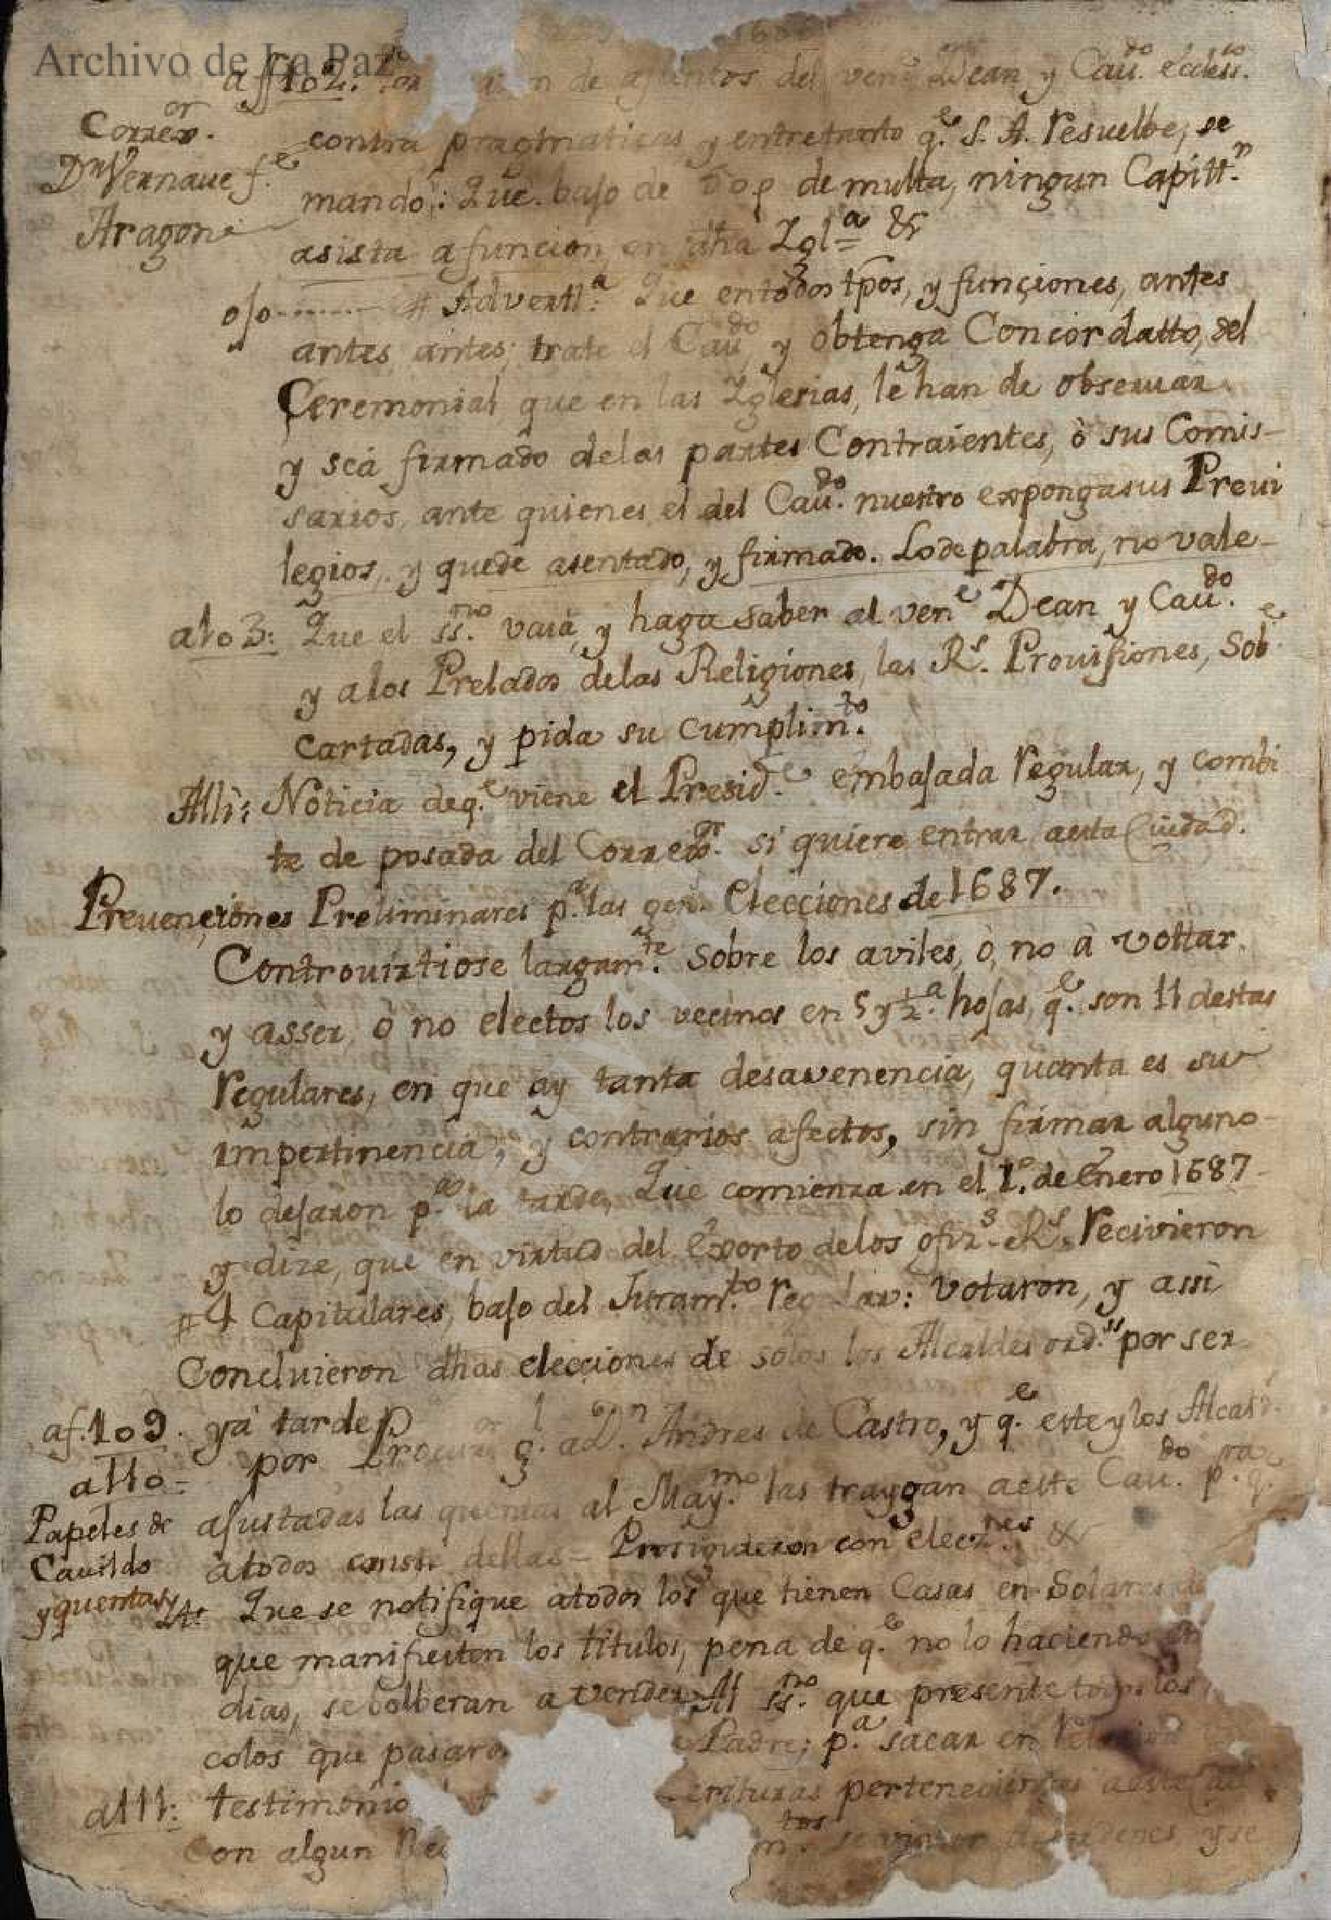 Archivo de La Paz
a f 102. de asientos del ven.e Dean y Cau.do ecless.co
Correx.or contra pragmaticas y entretanto q.e S. A. resuelbe, se
Dn Vernaue f.e mandó: Que bajo de de multa, ningun Capitt.n
Aragon asista a funcion en dha Igl.a &
o/o # Advertt.a Que entodos tpos, y funçiones, antes
antes antes; trate el Cau.do y obtenga Concordatto, del
Ceremonial que en las Iglesias, le han de obseruar
y sea firmado delas partes Contraientes, ò sus Comis-
sarios, ante quienes el del Cau.do nuestro expongasus Preui
legios, y quede asentado, y firmado. Lodepalabra, no vale-
a103: Que el ss.no vaia, y haga saber al ven.e Dean y Cau.do
y alos Prelados delas Religiones, las R.s Prouissiones, Sob.e
cartadas, y pida su cumplim.to
Alli: Noticia deq.e viene el Presid.e embajada regular, y combi
te de posada del Correx.or si quiere entrar aesta Ciudad.
Preuençiones Preliminares p.a las gen. Elecçiones de 1687.
Controuirtiose largam.te sobre los aviles, ò, no à vottar
y asser, o no electos los vecinos en 5 y 1/2.a hojas, q.e son 11 destas
regulares, en que ay tanta desavenencia, quanta es su
impertinencia, y contrarios afectos, sin firmar alguno
lo dejaron p.a la tarde, Que comienza en el 1.o de Enero 1687
y dize, que en virtud del Exorto delos ofiz.s R.s recivieron
4 Capitulares, bajo del Juram.to regular: votaron, y assi
Concluieron dhas elecçiones de solos los Alcaldes ord.ss por ser
af.109. yá tarde
a110= por Procur. g.l a D.n Andres de Castro, y q.e este y los Alcald.
Papeles de ajustadas las quentas al May.mo las traygan aeste Cau.do p.ra q.
Cauildo atodos conste dellas= Prosiguieron con elecz.nes &
y quentas Que se notifique atodos los que tienen Casas en Solares
que manifiesten los titulos, pena de q.e no lo haciendo
dias, se bolberan a vender Al ss.no que presente los
colos que pasaro Padre; p.a sacar en
a111: testimonio erituras pertenecientes aeste Cau
Con algun m.tos y se